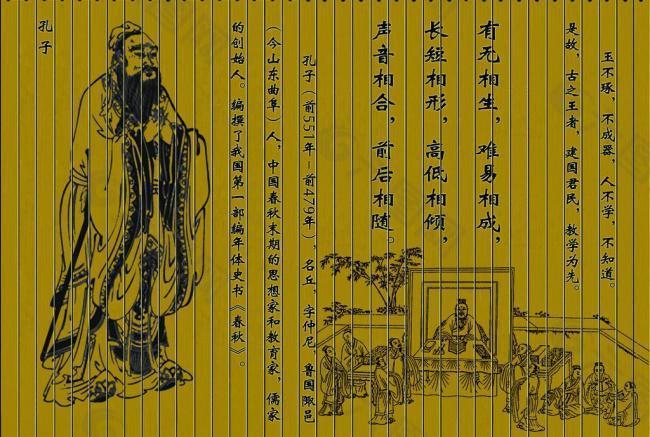 玉不琢，不成器，人不学，不知道。
是故，古之王者，建国君民，教学为先。
有无相生，难易相成，
长短相形，高低相倾，
声音相合，前后相随。
孔子（前551年－前479年），名丘，字仲尼，鲁国陬邑
（今山东曲阜）人，中国春秋末期的思想家和教育家，儒家
的创始人。编撰了我国第一部编年体史书《春秋》。
孔子